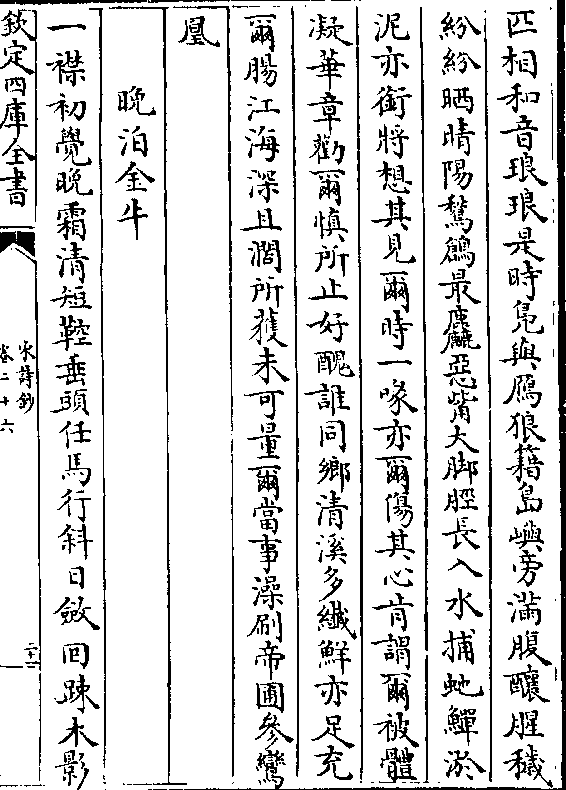 匹相和音琅琅是時鳬與鴈狼籍島嶼旁滿腹釀腥穢
紛紛晒晴陽鶖鶬最麤惡觜大脚脛長入水捕虵鱓淤
泥亦銜將想其見爾時一喙亦爾傷其心肯謂爾被體
凝華章勸爾慎所止好醜誰同鄉清溪多纎鮮亦足充
爾腸江海深且濶所獲未可量爾當事澡刷帝圃參鸞
凰
晚泊金牛
一襟初覺晚霜清短鞚垂頭任馬行斜日斂回踈木影
欽定四庫全書
宋詩鈔
卷二十六